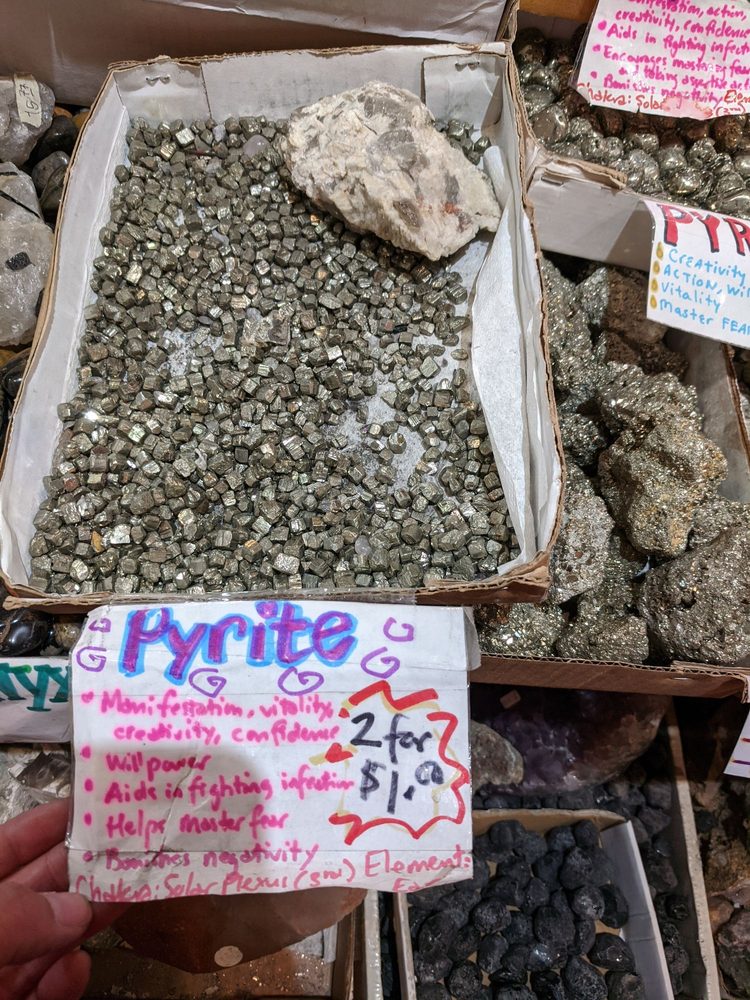 creativity, confidence
• Aids in fighting infect
• Encourages
and taking
• Banishes negativity
Chakra: Solar
PYR
Creativity
Action, Wil
Vitality
Master FEA
Pyrite
• Manifestation, vitality,
creativity, confidence
• Willpower
• Aids in fighting infection
• Helps master fear
• Banishes negativity
Chakra: Solar Plexus (3rd) Element:
2 for
$1.00
NYX